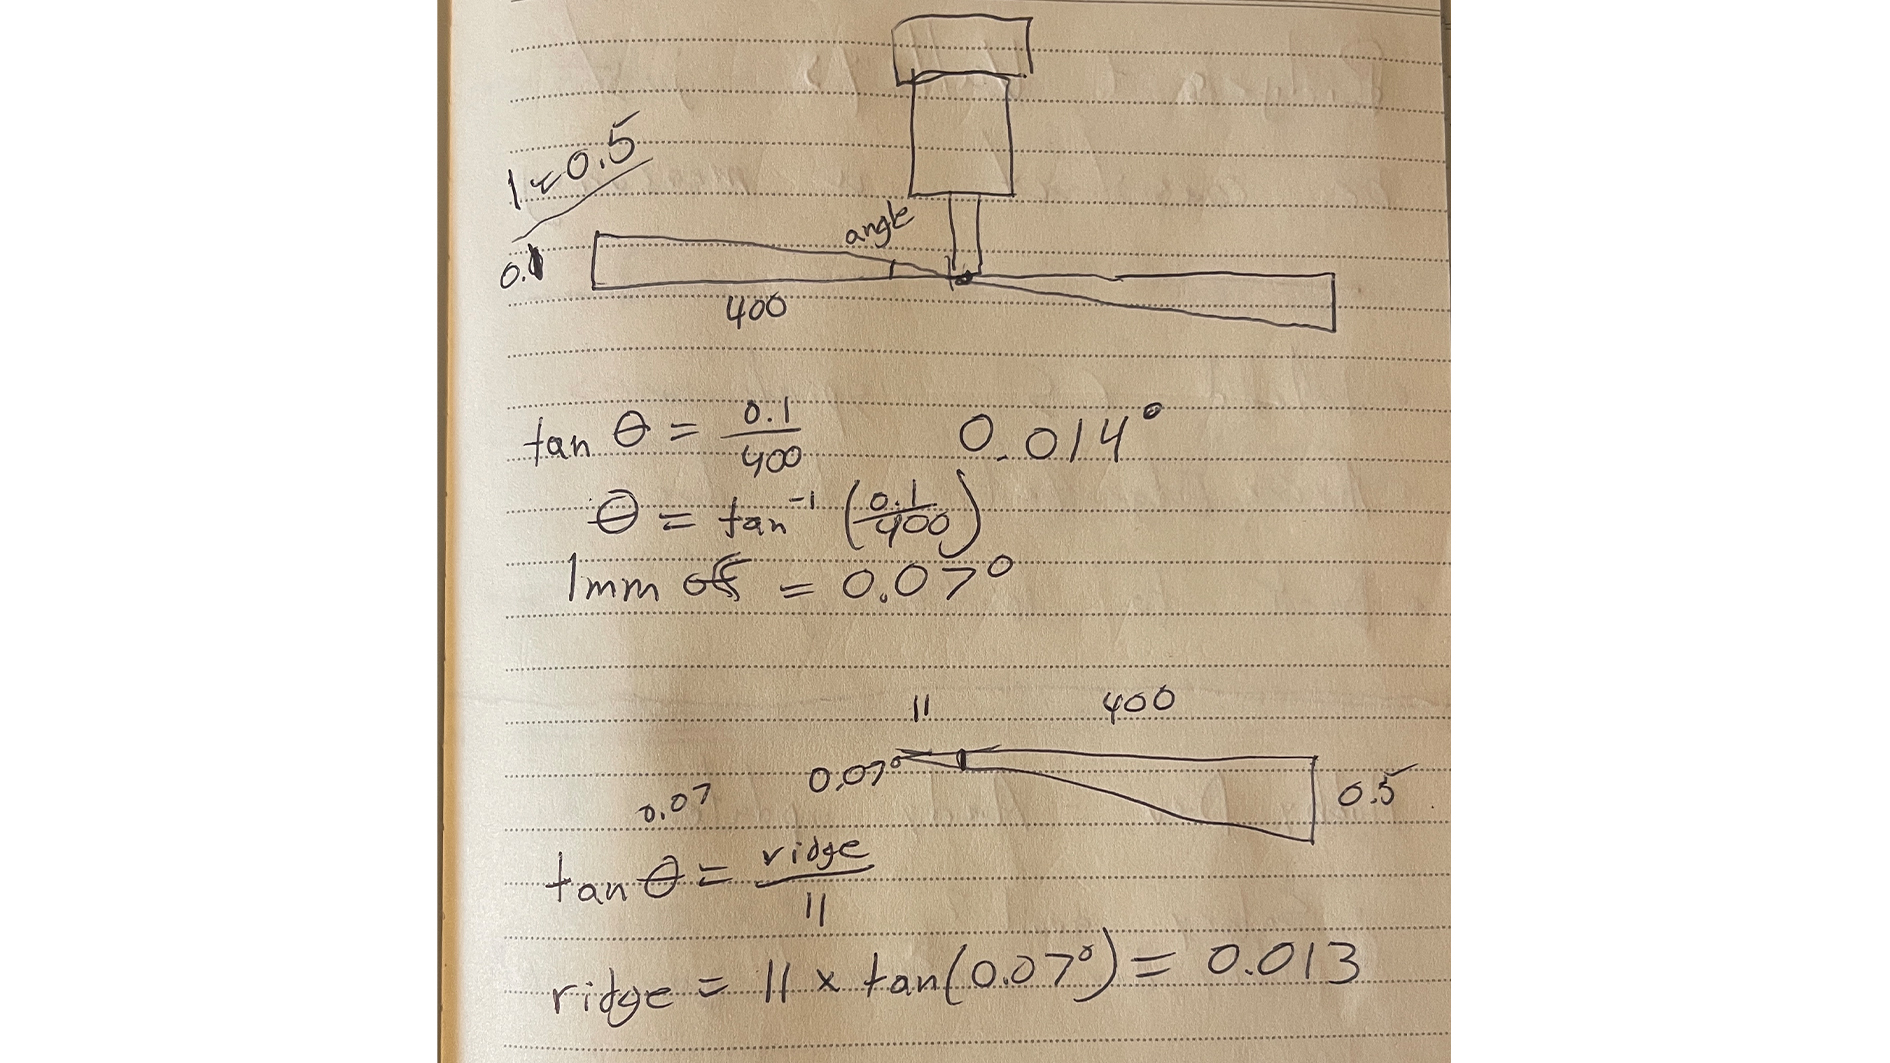 1 ÷ 0.5
angle
0.1
400
tan θ = 0.1/400 0.014°
θ = tan⁻¹ (0.1/400)
1mm off = 0.07°
11 400
0.07° 0.5
0.07
tan θ = ridge/11
ridge = 11 x tan(0.07°) = 0.013